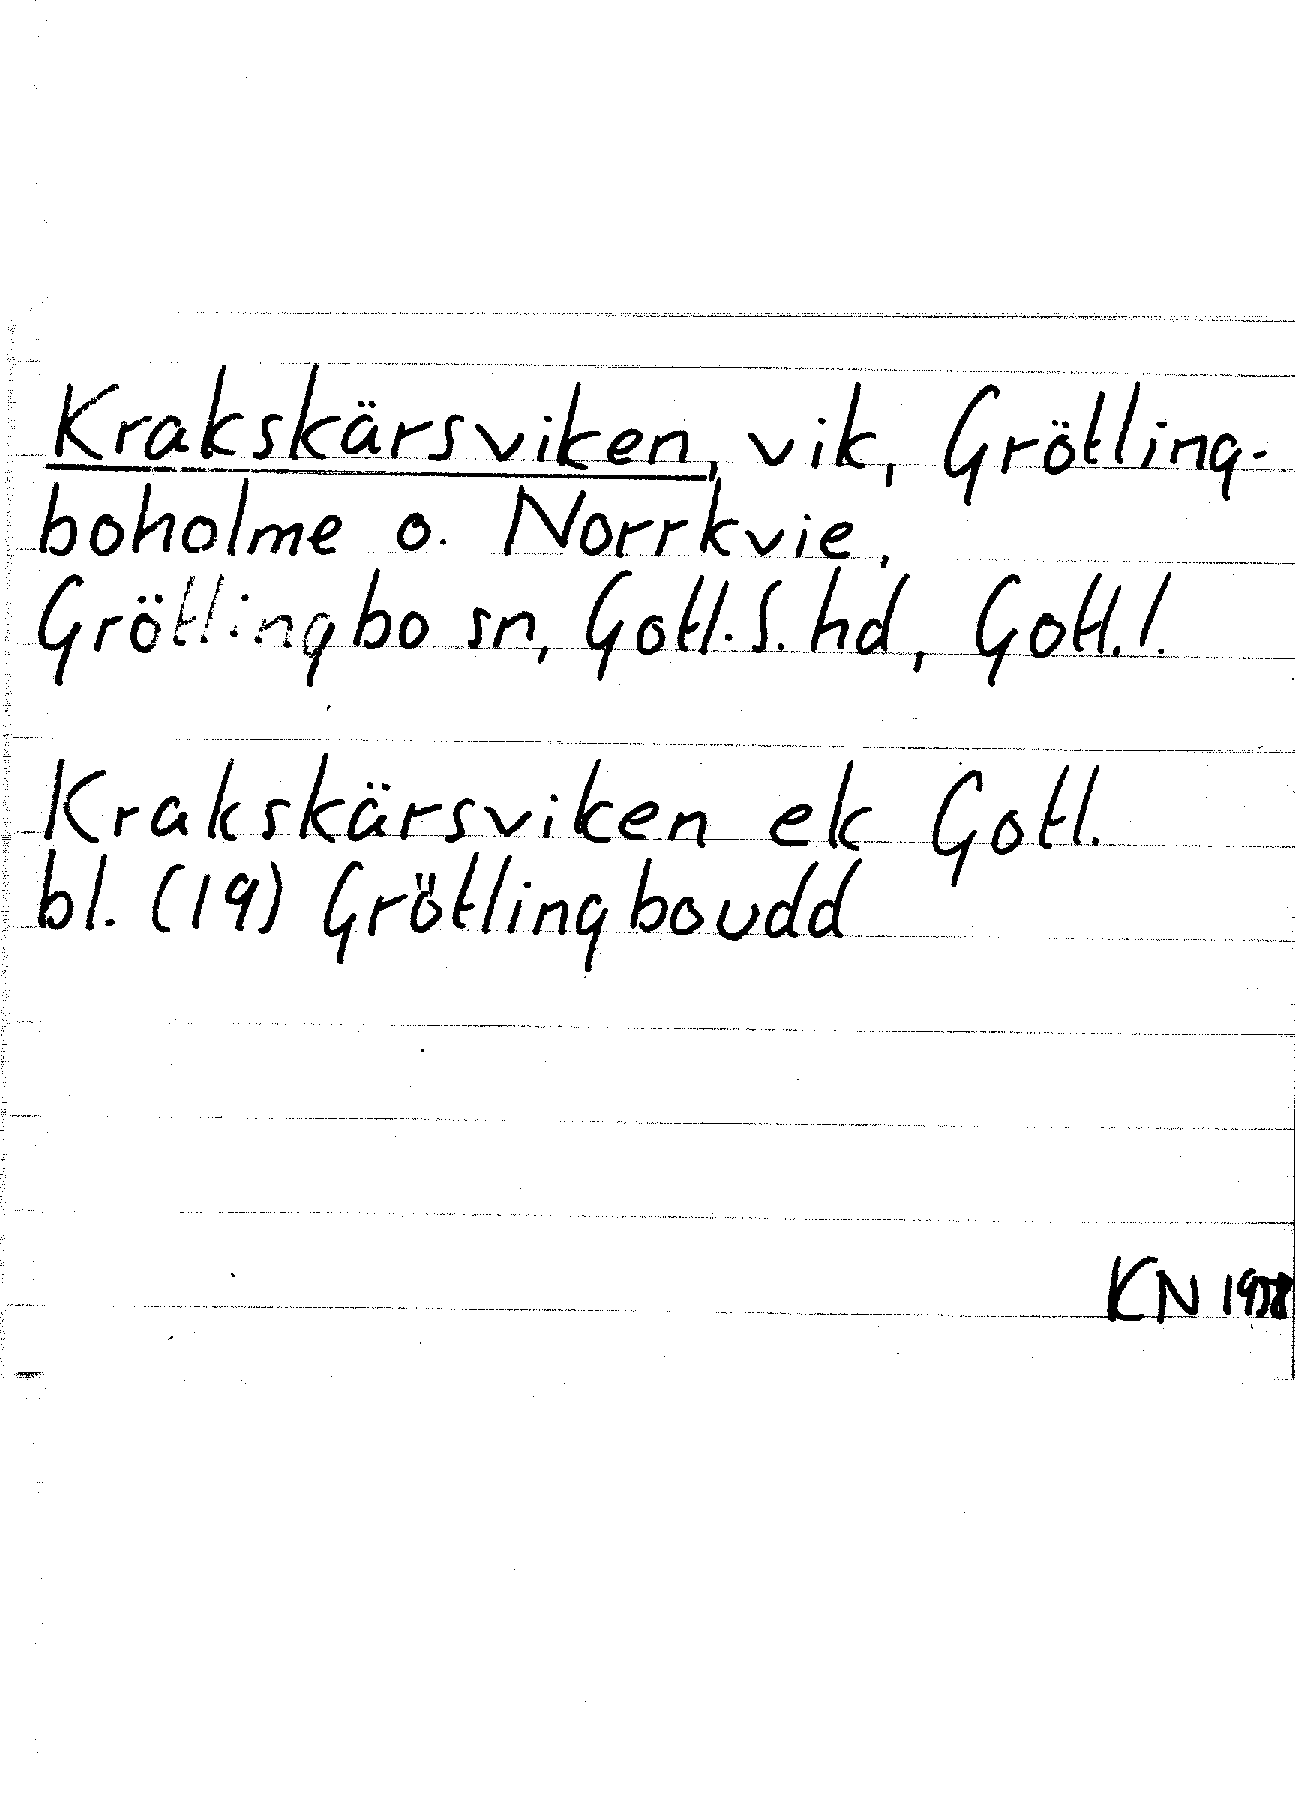 Krakskärsviken, vik, Grötling-
boholme o. Norrkvie,
Grötlingbo sn, Gotl. S. hd, Gotl. l.
Krakskärsviken ek Gotl.
bl. (19) Grötlingboudd
KN 1938